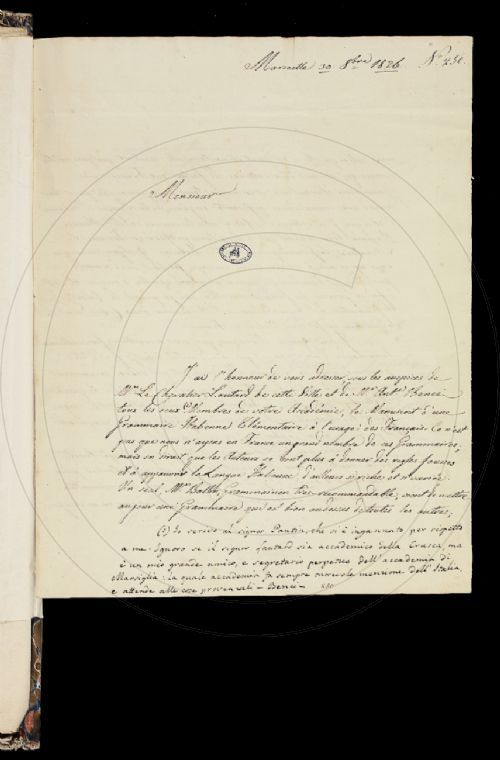 Marseille 30 8bre 1826 No. 230.
Monsieur
J'ai l'honneur de vous adresser, sous les auspices de
Mr. Le Chevalier Lautard de cette Ville, et de Mr. Antne. Benci
tous les deux Membres de votre Académie, le Manuscrit d'une
Grammaire Italienne Elémentaire à l'usage des Français. Ce n'est
pas que nous n'ayons en France un grand nombre de ces Grammaires,
mais on dirait que les Auteurs se sont plus à donner des règles fausses
et à appauvrir la Langue Italienne, d'ailleurs si riche et si variée.
Un seul, Mr. Grammairien très recommandable, vient de mettre
au jour une Grammaire qui est bien au dessus de toutes les autres;
(1) Io servivo al signor che si è ingannato, per rispetto
a me. Ignoro se il signor Lautard sia accademico della Crusca, ma
è un mio grande amico, e segretario perpetuo dell' accademia di
Marsiglia: la quale accademia fa sempre onorevole menzione dell' Italia,
e attende alle cose provenzali - Benci -